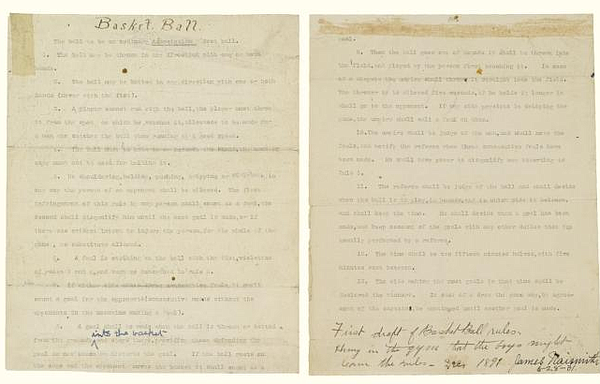 Basket Ball.
The ball to be an ordinary Association foot ball.
1. The ball may be thrown in any direction with one or both
hands.
2. The ball may be batted in any direction with one or both
hands (never with the fist).
3. A player cannot run with the ball, the player must throw
it from the spot on which he catches it, allowance to be made for
a man who catches the ball when running at a good speed.
4. The ball must be held in or between the hands, the arms or
body must not be used for holding it.
5. No shouldering, holding, pushing, tripping or striking in
any way the person of an opponent shall be allowed. The first
infringement of this rule by any person shall count as a foul, the
second shall disqualify him until the next goal is made, or if
there was evident intent to injure the person, for the whole of the
game, no substitute allowed.
6. A foul is striking at the ball with the fist, violation
of rules 3 and 4, and such as described in rule 5.
7. If either side makes three consecutive fouls it shall
count a goal for the opponents (consecutive means without the
opponents in the meantime making a foul).
into the basket
8. A goal shall be made when the ball is thrown or batted
from the grounds and stays there, providing those defending the
goal do not touch or disturb the goal. If the ball rests on
the edge and the opponent moves the basket it shall count as a
goal.
9. When the ball goes out of bounds it shall be thrown into
the field, and played by the person first touching it. In case
of a dispute the umpire shall throw it straight into the field.
The thrower in is allowed five seconds, if he holds it longer it
shall go to the opponent. If any side persists in delaying the
game, the umpire shall call a foul on them.
10. The umpire shall be judge of the men, and shall note the
fouls, and notify the referee when three consecutive fouls have
been made. He shall have power to disqualify men according to
Rule 5.
11. The referee shall be judge of the ball and shall decide
when the ball is in play, in bounds, and to which side it belongs,
and shall keep the time. He shall decide when a goal has been
made, and keep account of the goals with any other duties that are
usually performed by a referee.
12. The time shall be two fifteen minutes halves, with five
minutes rest between.
13. The side making the most goals in that time shall be
declared the winners. In case of a draw the game may, by agree-
ment of the captains, be continued until another goal is made.
First draft of Basket Ball rules.
Hung in the gym that the boys might
learn the rules - Dec 1891 James Naismith
6-28-31.